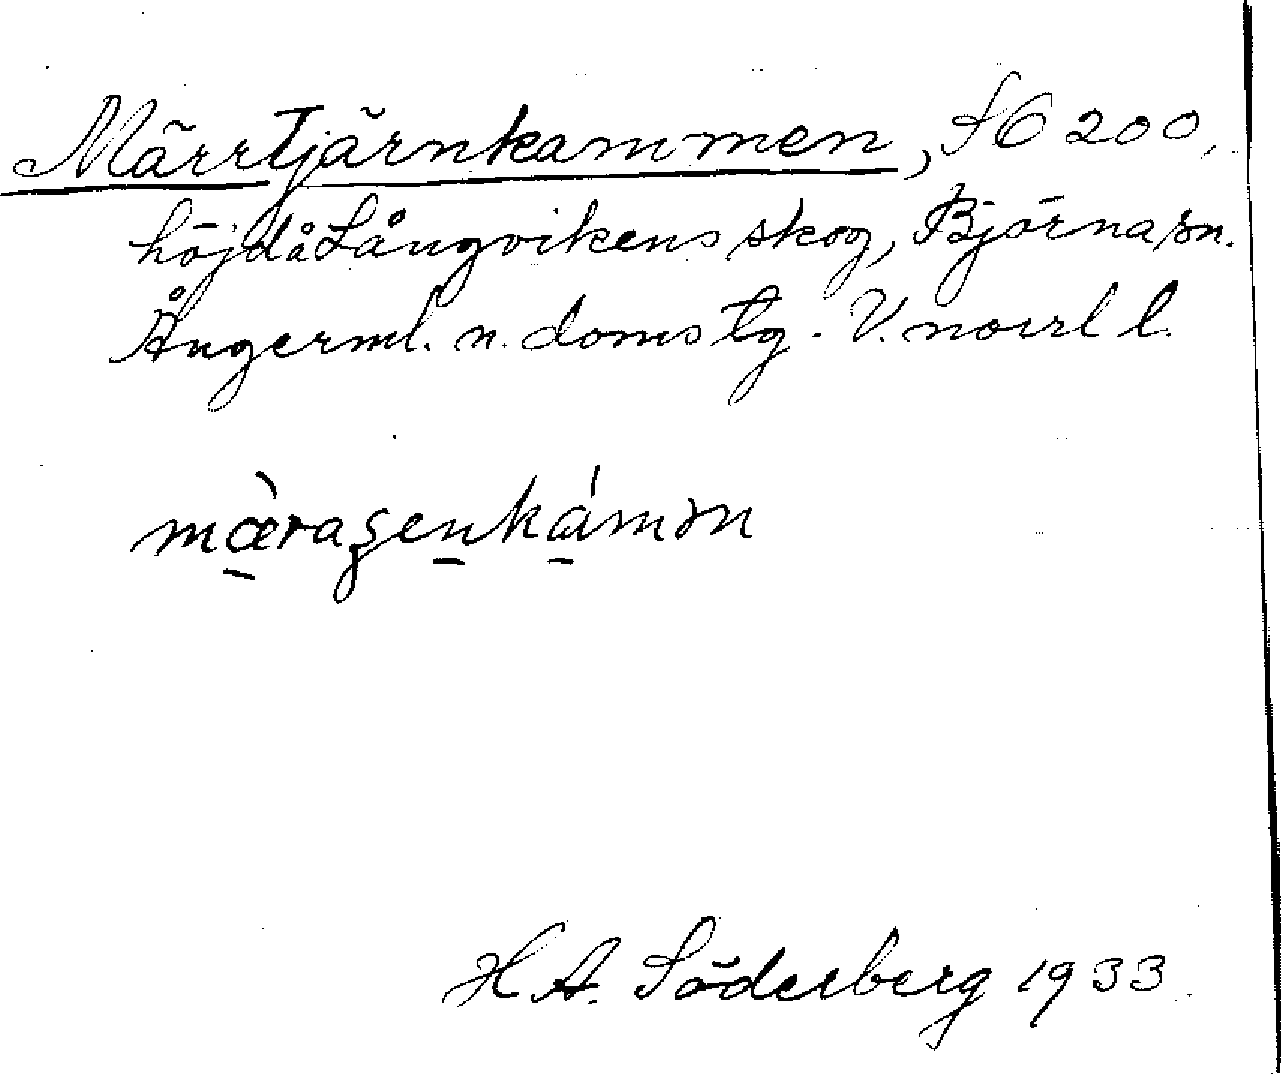 Märrtjärnkammen, SG 200,
höjd å Långvikens skog, Björna sn.
Ångerml. n. doms tg. V. norrl l.
mæ̀raʂenkámən
H A. Söderberg 1933